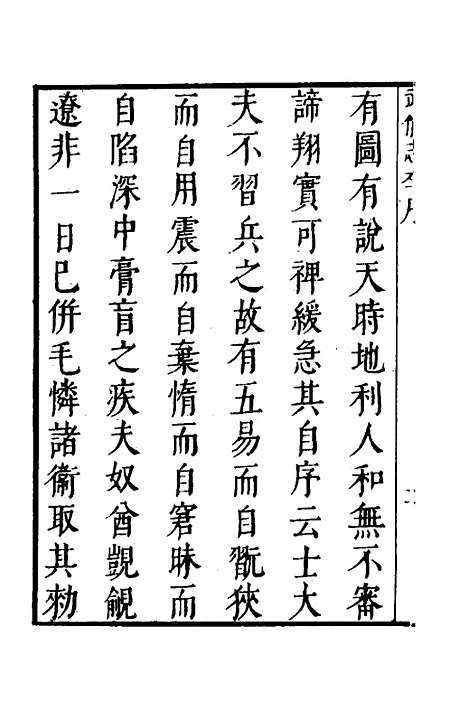 有圖有說天時地利人和無不審
諦翔實可裨緩急其自序云士大
夫不習兵之故有五易而自翫狹
而自用震而自棄惰而自窘昧而
自陷深中膏盲之疾夫奴酋覬覦
遼非一日已併毛憐諸衛取其勑